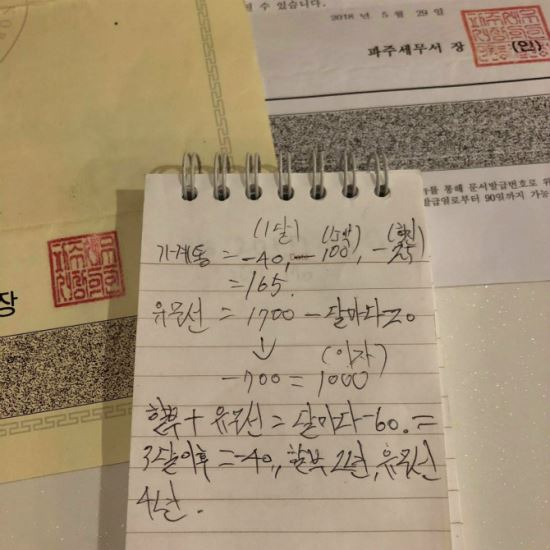 수 있습니다.
2018 년 5 월 29 일
파주세무서 장 (인)
를 통해 문서발급번호로 위
발급일로부터 90일까지 가능
장
(1달)
가계통 = -40, -100, -25
= 165.
유무선 = 1700 - 달마다 20
↓ (이자)
-700 = 1000
할부 + 유무선 = 달마다 -60. =
3달이후 = -40, 할부 2년, 유무선
4년.